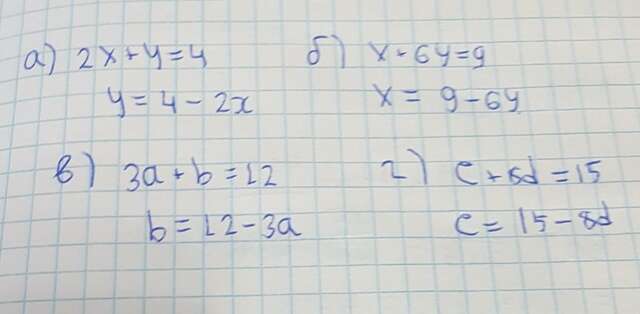 а) 2x+y=4
y = 4 - 2x
б) x - 6y = 9
x = 9 - 6y
в) 3a + b = 12
b = 12 - 3a
г) c + 8d = 15
c = 15 - 8d